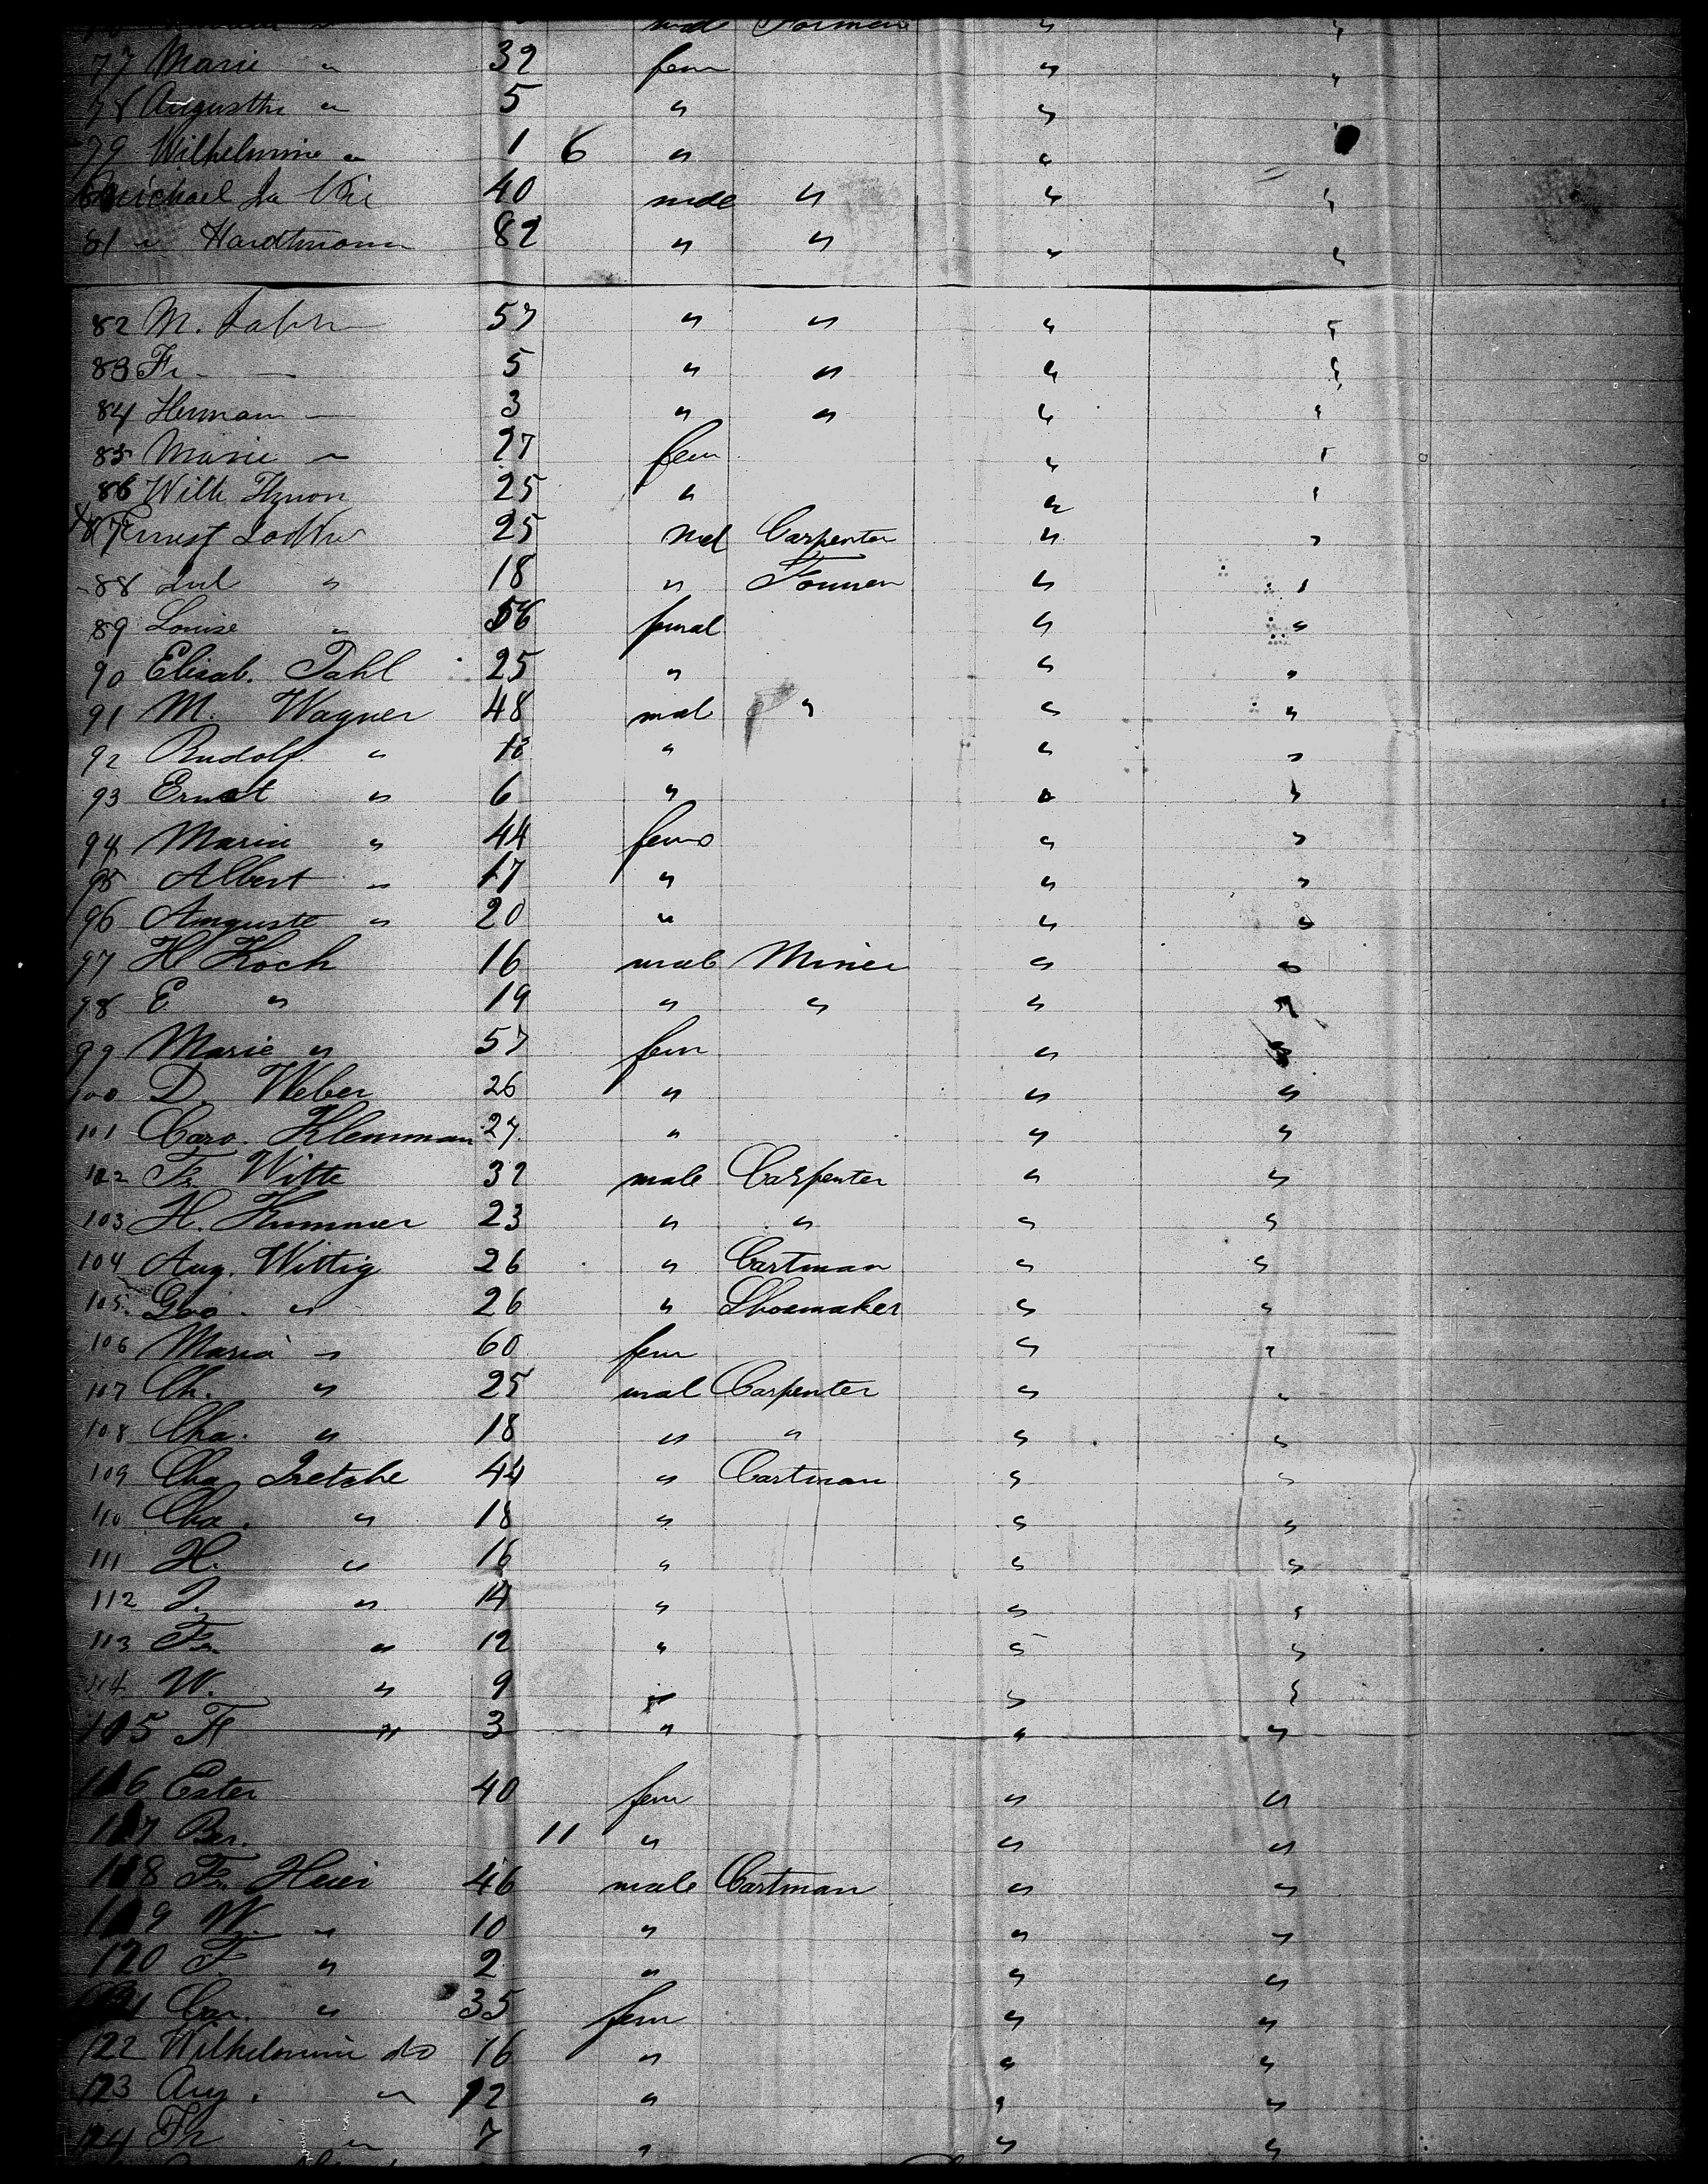 77 Marie " 32 fem " "
78 Augusthe " 5 " " "
79 Wilhelmine " 1 6 " "
Michael 40 male " " "
81 " Hardtmann 82 " " " "
82 M. 57 " " " "
83 Fr. — 5 " " " "
84 Herman — 3 " " " "
85 Marie " 27 fem " "
86 Wilh 25 " " "
87 Ernst 25 mal Carpenter " "
88 " 18 " " "
89 Louise " 56 femal " "
90 Elisab. Pahl 25 " " "
91 M. Wagner 48 mal " " "
92 Rudolf " " " "
93 Ernst " 6 " " "
94 Marie " 44 fem " "
95 Albert " 17 " " "
96 Auguste " 20 " " "
97 H. Koch 16 male Miner " "
98 E " 19 " " " "
99 Marie " 57 fem " "
100 D. Weber 26 " " "
101 Caro. Klemman 27 " " "
102 Fr. Witte 32 male Carpenter " "
103 H. Kummer 23 " " " "
104 Aug. Wittig 26 " Cartman " "
105 Geo. " 26 " Shoemaker " "
106 Maria " 60 fem " "
107 Ch. " 25 mal Carpenter " "
108 Cha. " 18 " " " "
109 Cha 44 " Cartman " "
110 Cha. " 18 " " "
111 H. " 16 " " "
112 " 14 " " "
113 Fr. " 12 " " "
114 W. " 9 " " "
115 " 3 " " "
116 Ester 40 fem " "
117 11 " " "
118 Fr. 46 male Cartman " "
119 W. " 10 " " "
120 F " 2 " " "
121 Car. " 35 fem " "
122 Wilhelmine do 16 " " "
123 Aug. " 12 " " "
124 Fr " 7 " " "